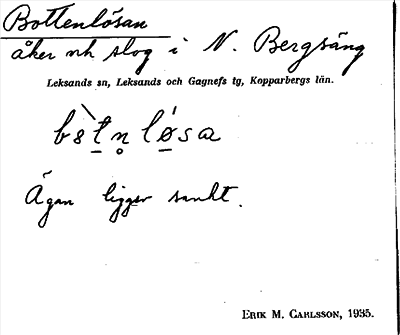 Bottenlösan
åker och slog i N. Bergsäng
Leksands sn, Leksands och Gagnefs tg, Kopparbergs län.
Ägan ligger sankt.
ERIK M. CARLSSON, 1935.